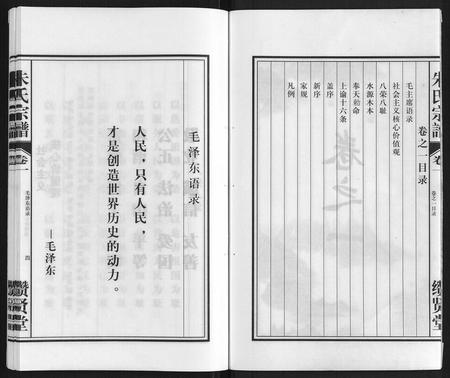 朱氏宗譜
卷一
卷之一目录
續贤堂
卷之一目录
毛主席语录
社会主义核心价值观
八荣八耻
水源木本
奉天勅命
上谕十六条
盖序
新序
家规
凡例
毛泽东语录
人民，只有人民，
才是创造世界历史的动力。
—毛泽东
朱氏宗譜
卷一
毛泽东语录
四
續贤堂